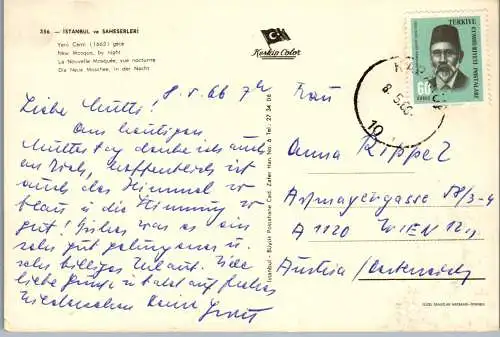 336. — İSTANBUL ve ŞAHESERLERİ
Yeni Cami (1663) gece
New Mosque, by night
La Nouvelle Mosquée, vue nocturne
Die Neue Moschee, in der Nacht
Keskin Color
TÜRKİYE
CUMHURİYETİ POSTALARI
60
KURUŞ
8.5.66
10
8.5.66
Liebe Mutti!
Am heutigen
Muttertag denke ich auch
an Dich, hoffentlich ist
auch das Himmel so
blau u die Stimmung so
gut! Bisher war es ein
sehr gut gelungener u.
sehr billiger Urlaub. Viele
liebe Grüße u bald auf frohes
Wiedersehen Deine
Frau
Anna Rippel
Aßmayergasse 58/3-4
A 1120 WIEN 12
Austria/Oesterreich
İstanbul - Büyük Postahane Cad. Zafer Han. No. 6 Tel: 27 34 08